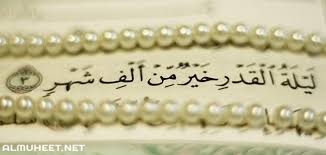 لَيْلَةُ الْقَدْرِ خَيْرٌ مِّنْ أَلْفِ شَهْرٍ ٣
ALMUHEET.NET